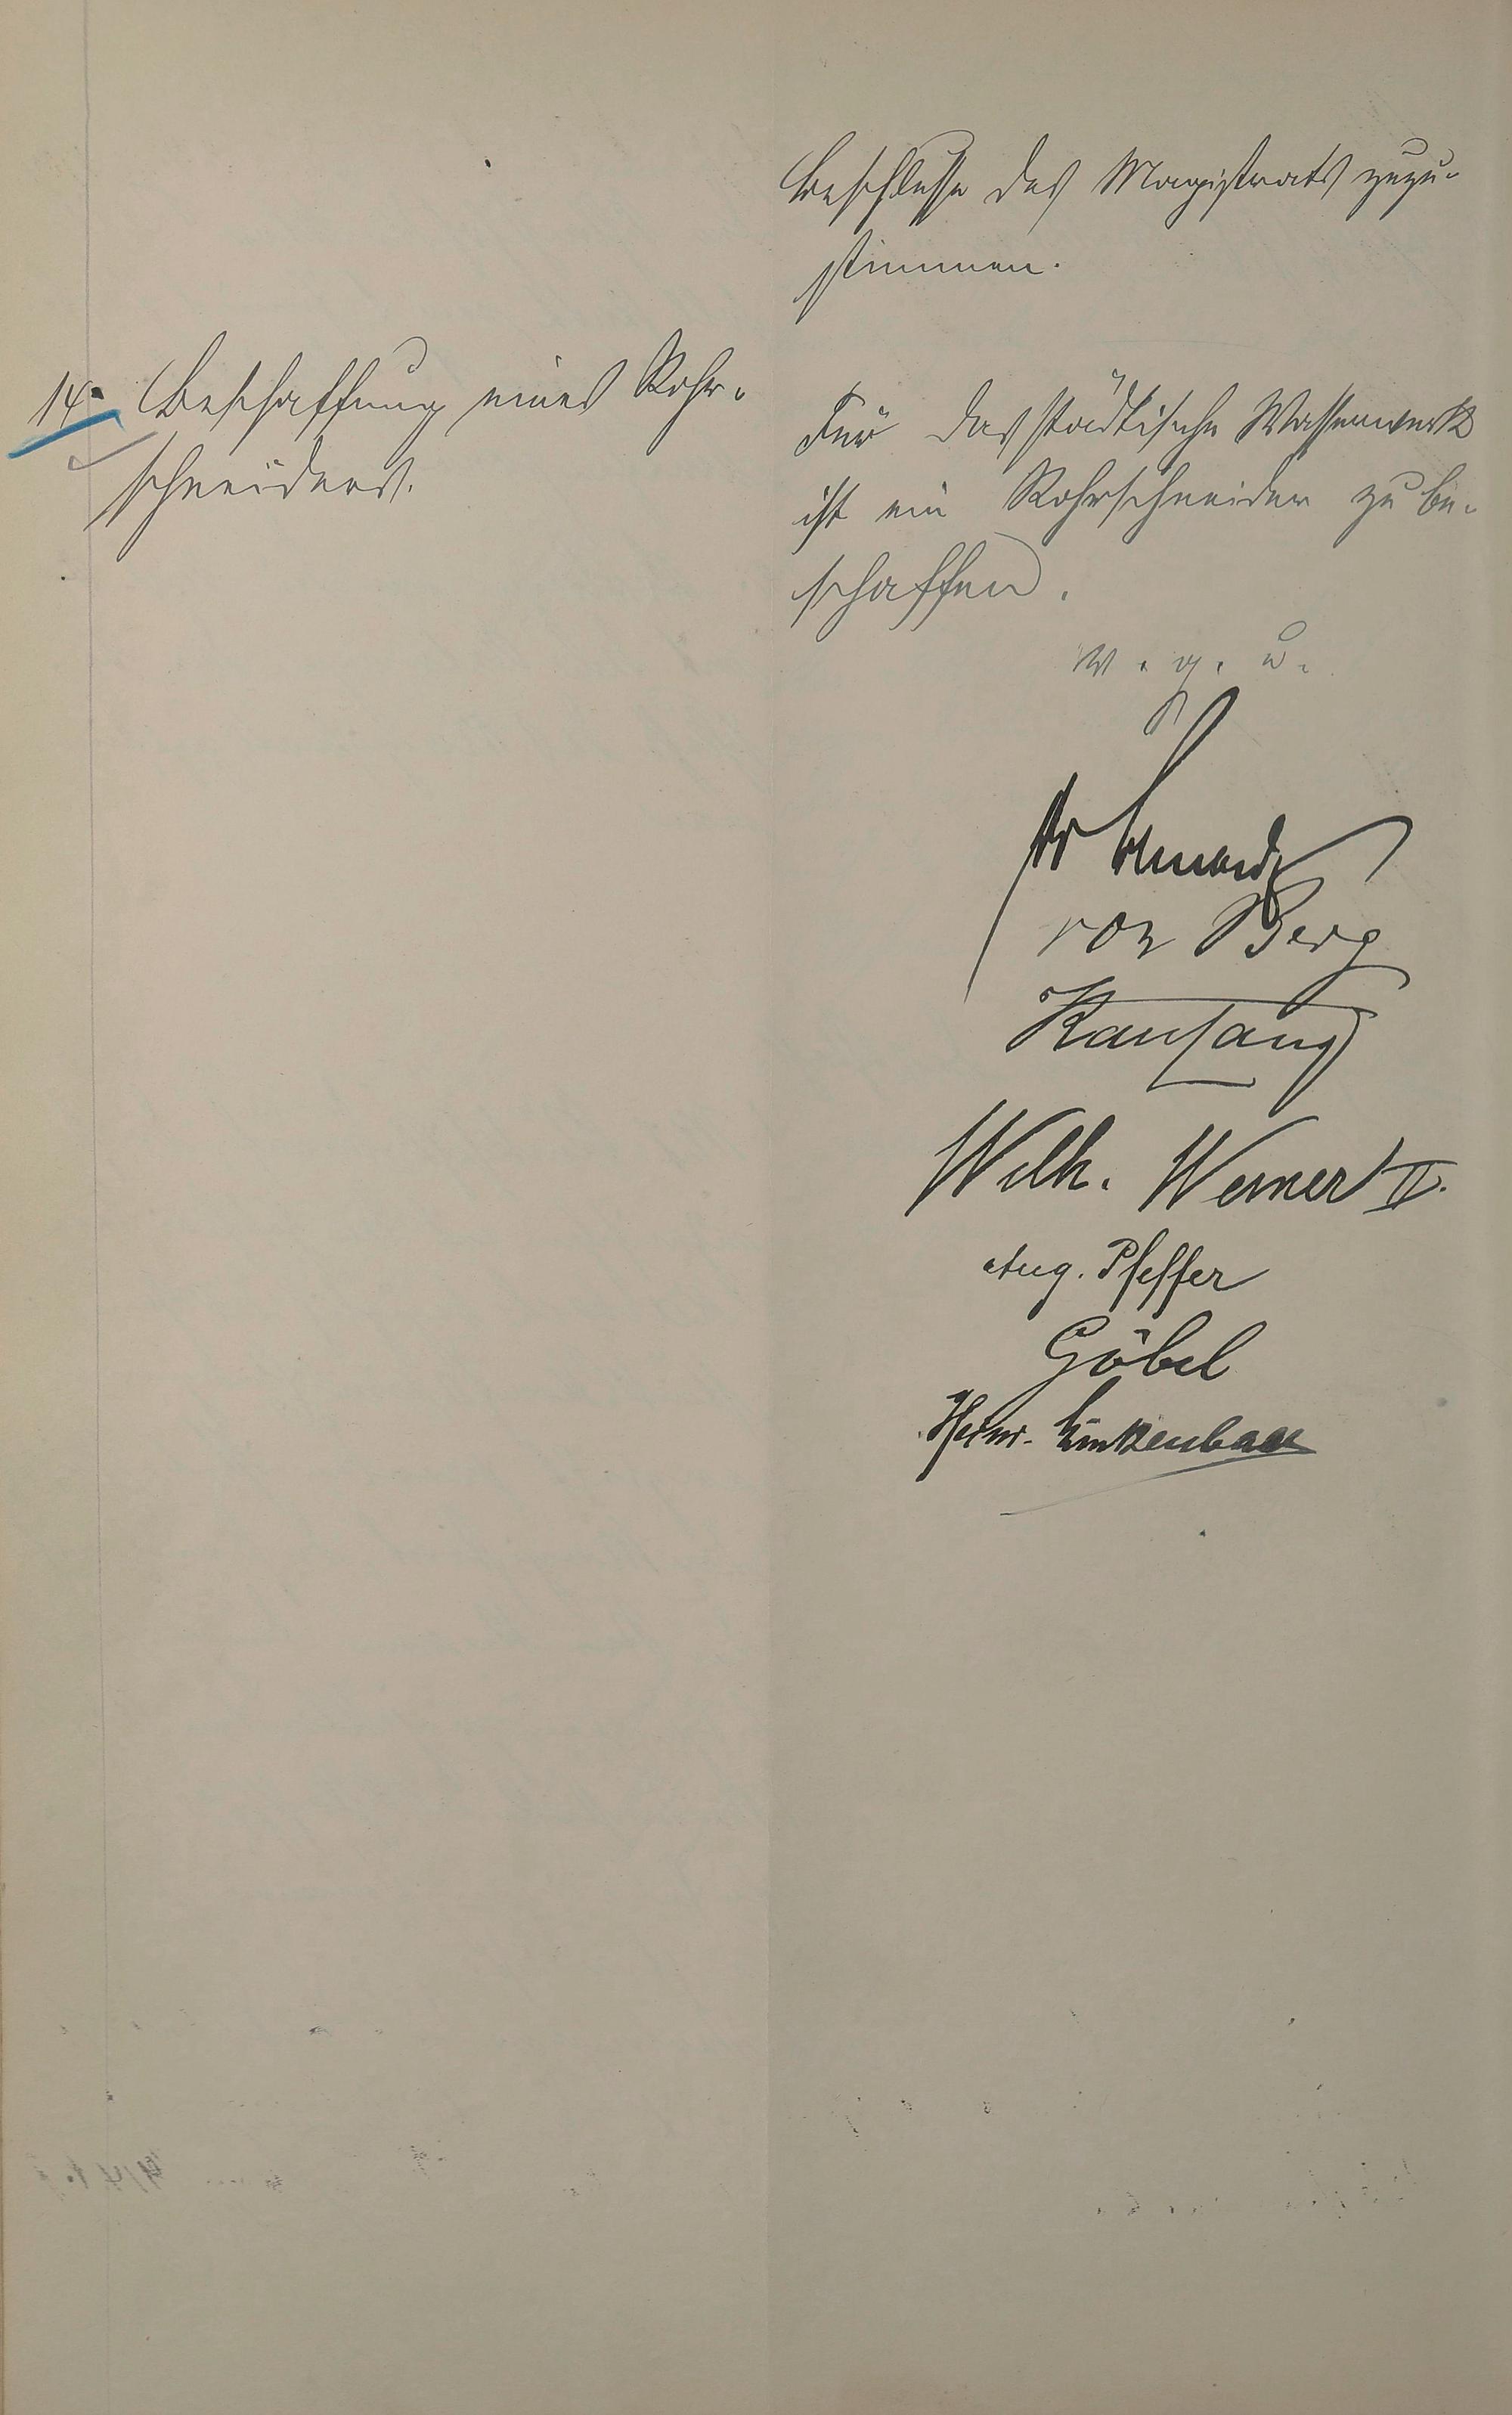 Beschlusse des Magistrats zuzu-
stimmen.
14. Beschaffung eines Rohr-
schneiders.
Für das städtische Wasserwerk
ist ein Rohrschneider zu be-
schaffen.
v. g. u.
von Berg
Wilh. Werner II.
Aug. Pfeffer
Göbel
Heinr.